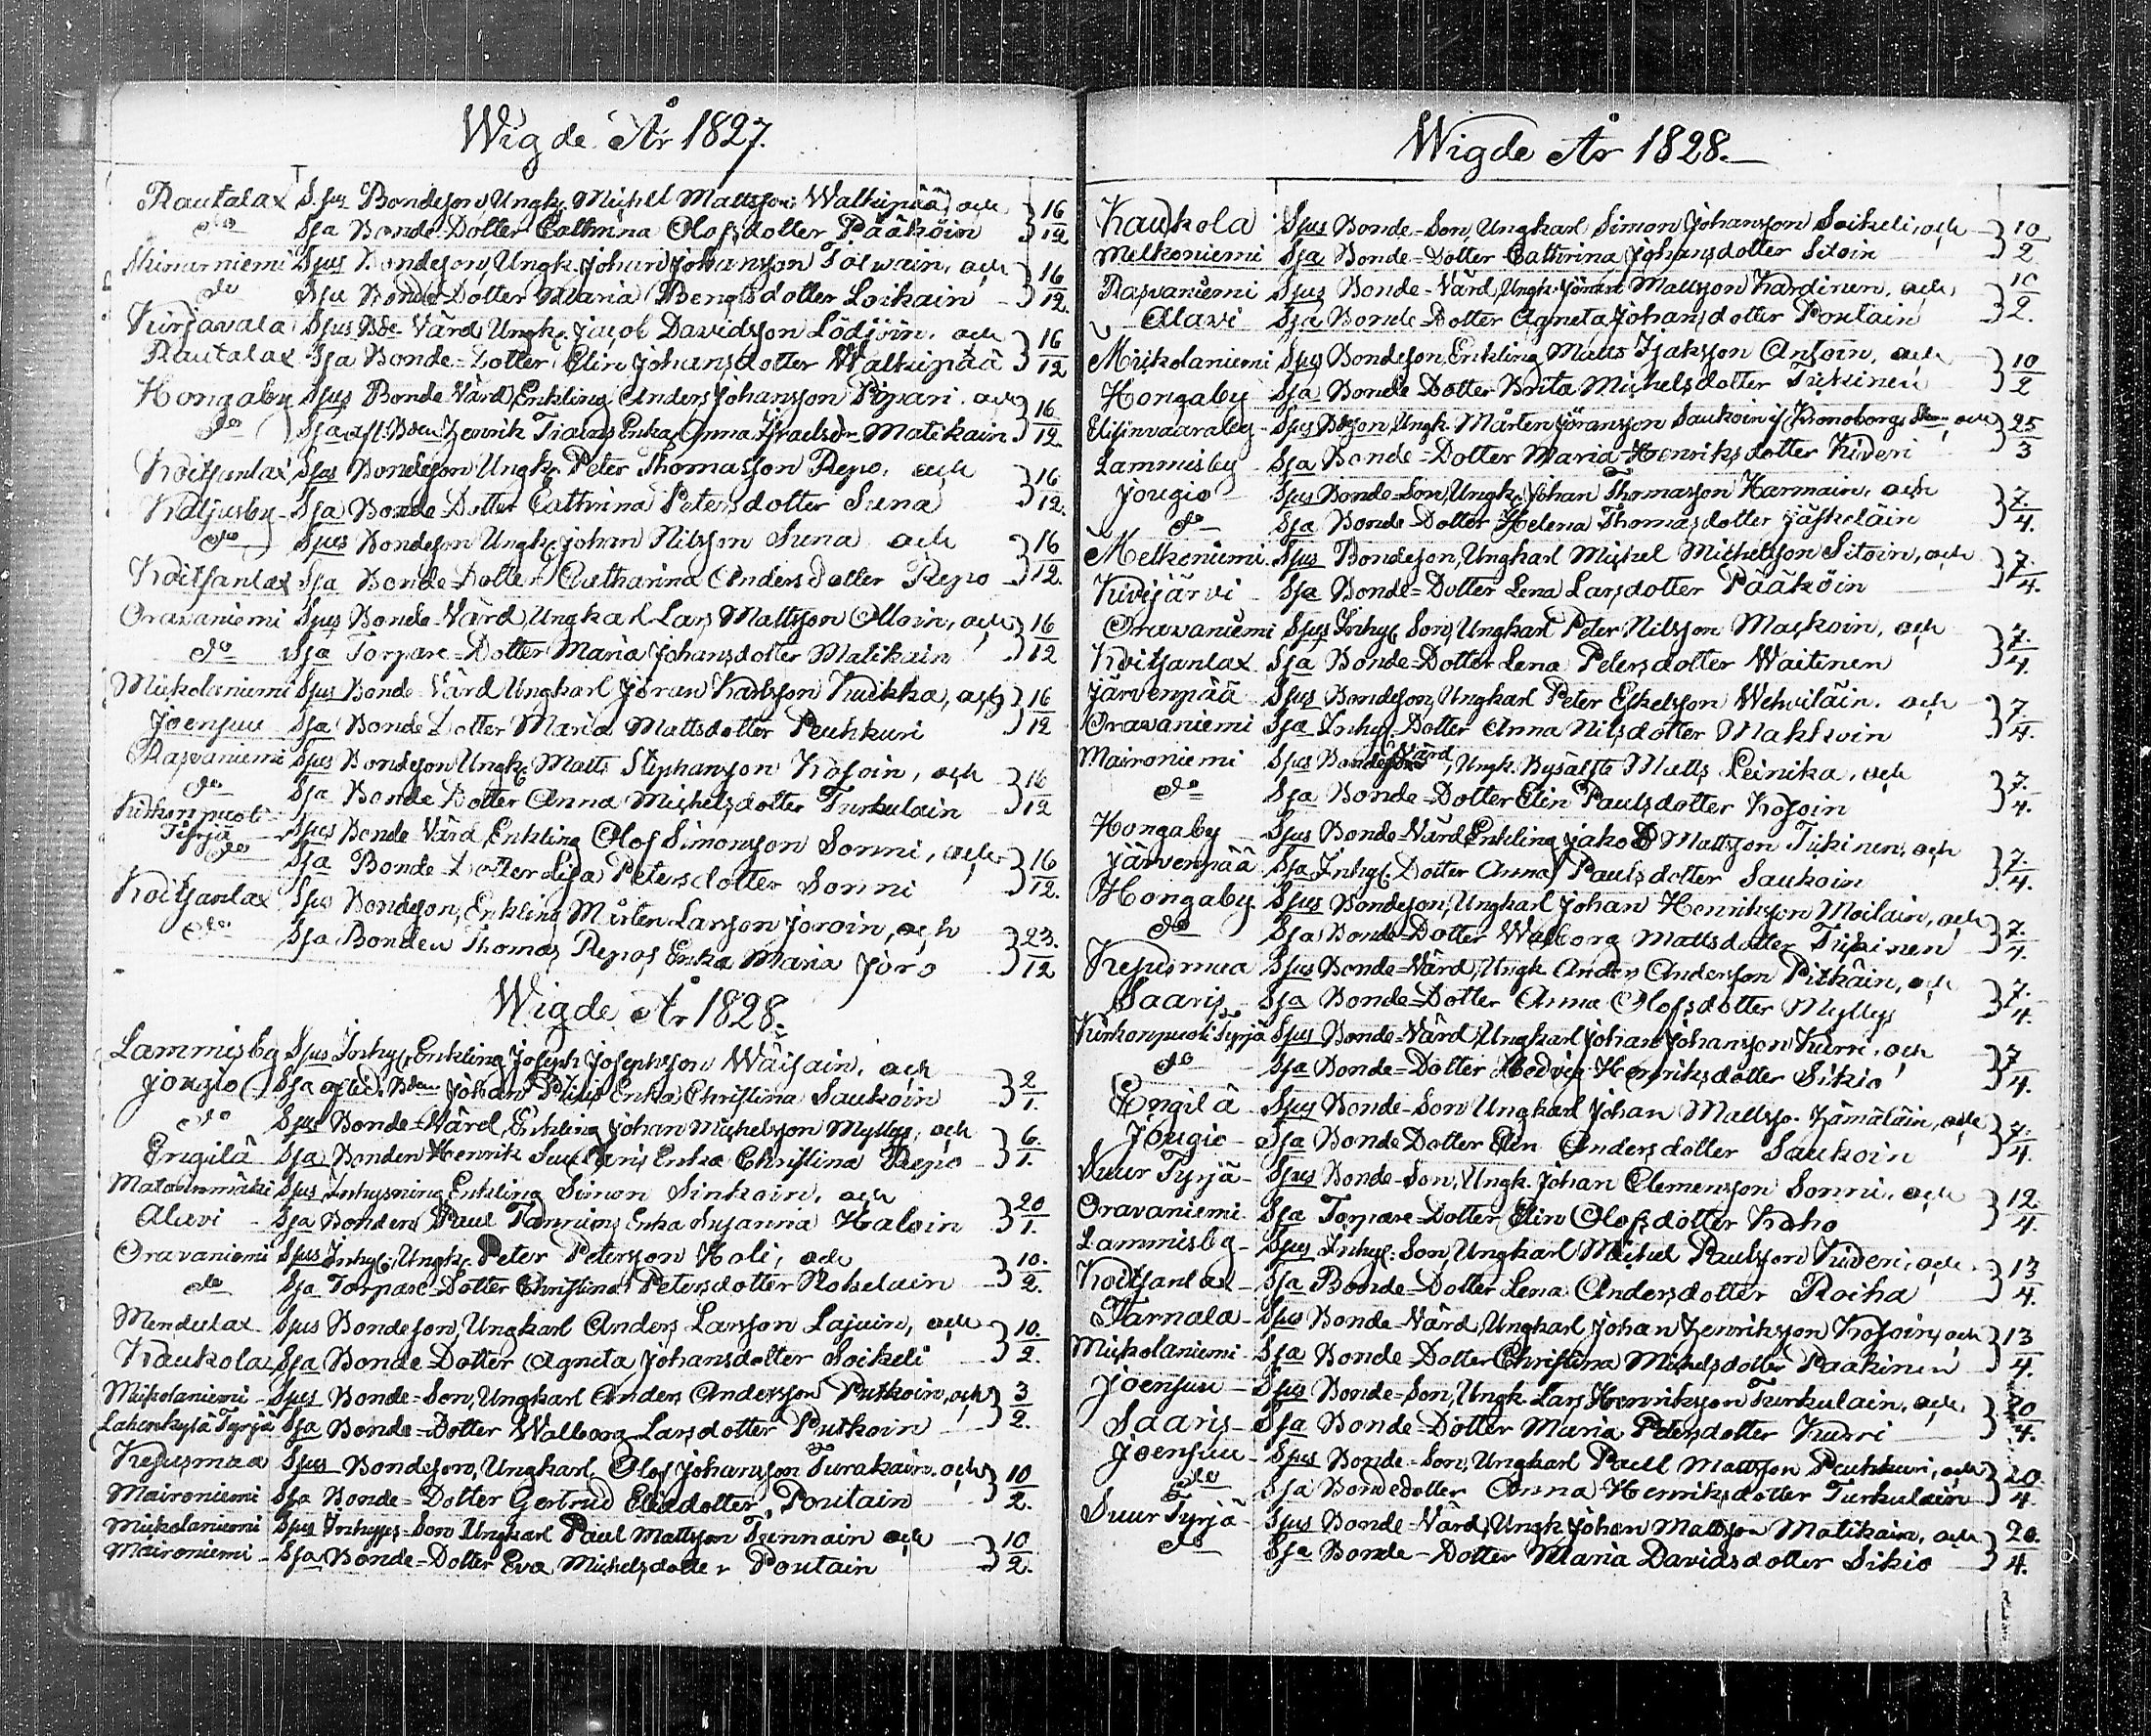 Wigde År 1827.
Rautalax Sjus Bondeson, Ungk. Michel Mattsson Walkipää, och } 16
do Sja Bonde-Dotter Cathrina Olofsdotter Pääköin } 12
Niinarniemi Sjus Bondeson, Ungk. Johan Johansson Tolwain, och } 16
do Sja Bonde-Dotter Maria Bengtsdotter Loikain } 12.
Kirjavala Sjus Bde-Värd Ungk. Jacob Davidsson Lödjöin, och } 16
Rautalax Sja Bonde-Dotter Elin Johansdotter Walkipää } 12
Hongaby Sjus Bonde Värd, Enkling Anders Johansson Pipari, och } 16
do Sja afl. Bden Henrik Tiains Enka, Anna Israelsdr Matikain } 12.
Koitsanlax Sjus Bondeson Ungk. Peter Thomasson Repo, och } 16
Kaljusby Sja Bonde Dotter Cathrina Petersdotter Suna } 12.
do Sjus Bondeson Ungk. Johan Nilsson Suna och } 16
Koitsanlax Sja Bonde-Dotter Catharina Andersdotter Repo } 12.
Oravaniemi Sjus Bonde-Värd, Ungkarl Lars Mattsson Olloin, och } 16
do Sja Torpare-Dotter Maria Johansdotter Matikain } 12
Mickolaniemi Sjus Bonde-Värd Ungkarl Jöran Karlsson Kuikka, och } 16
Joensuu Sja Bonde Dotter Maria Mattsdotter Peuhkuri } 12
Rasvaniemi Sjus Bondeson Ungk. Matts Stephansson Kosoin, och } 16
do Sja Bonde Dotter Anna Michelsdotter Turkulain } 12
Kirkonpuoli
Tyrjä Sjus Bonde-Värd, Enkling Olof Simonsson Sonni, och } 16
do Sja Bonde-Dotter Lisa Petersdotter Sonni } 12.
Koitsanlax Sjus Bondeson, Enkling Mårten Larsson Joroin, och } 23.
do Sja Bonden Thomas Repos Enka Maria Joro } 12
Wigde År 1828.
Lammisby Sjus Inhys. Enkling Joseph Josephsson Wäisäin, och } 2
Jougio Sja afled. Bden Johan Enka Christina Saukoin } 1.
do Sjus Bonde-Värd, Enkling Johan Michelsson Myllys, och } 6.
Engilä Sja Bonden Henrik Enka Christina Repo } 1.
Matoinmäki Sjus Inhysning Enkling Simon Sinkoin, och } 20
Alavi Sja Bonden Paul Tannings Enka Susanna Haloin } 1.
Oravaniemi Sjus Inhys. Ungk. Peter Petersson Holi, och } 10.
do Sja Torpare-Dotter Christina Petersdotter Rokelain } 2.
Mendulax Sjus Bondeson, Ungkarl Anders Larsson Lajuin, och } 10.
Kaukola Sja Bonde-Dotter Agneta Johansdotter Soikeli } 2.
Mickolaniemi Sjus Bonde-Son, Ungkarl Anders Andersson Putkoin, och } 3
Lahenkylä Tyrjä Sja Bonde-Dotter Walborg Larsdotter Putkoin } 2.
Kesusmaa Sjus Bondeson, Ungkarl Olof Johansson Turakain, och } 10
Maironiemi Sja Bonde-Dotter Gertrud Eliedotter Poutain } 2.
Mickolaniemi Sjus Inhyses-Son Ungkarl Paul Mattsson Teinnain och } 10
Maironiemi Sja Bonde-Dotter Eva Michelsdotter Poutain } 2.
Wigde År 1828.
Kaukola Sjus Bonde-Son, Ungkarl Simon Johansson Soikeli, och } 10
Melkoniemi Sja Bonde-Dotter Cathrina Johansdotter Sitoin } 2
Rasvaniemi Sjus Bonde-Värd, Ungk. Jöran Mattsson Kardinen, och } 10
Alavi Sja Bonde-Dotter Agneta Johansdotter Poutain } 2.
Mickolaniemi Sjus Bondeson, Enkling Matts Isaksson Ansoin, och } 10
Hongaby Sja Bonde Dotter Brita Michelsdotter Tiikinen } 2
Elisenvaaraby Sjus Bdeson, Ungk. Mårten Jöransson Saukoin if Kronoborgs och } 25
Lammisby Sja Bonde-Dotter Maria Henriksdotter Kiveri } 3
Jougio Sjus Bonde-Son, Ungk. Johan Thomasson Harmain, och } 7.
do Sja Bonde-Dotter Helena Thomasdotter Jäskeläin } 4.
Melkoniemi Sjus Bondeson, Ungkarl Michel Michelsson Sitoin, och } 7.
Kivijärvi Sja Bonde-Dotter Lena Larsdotter Pääköin } 4.
Oravaniemi Sjus Inhys. Son, Ungkarl Peter Nilsson Mackoin, och } 7.
Koitsanlax Sja Bonde-Dotter Lena Petersdotter Waitinen } 4.
Järvenpää Sjus Bondeson, Ungkarl Peter Eskelsson Wehviläin, och } 7
Oravaniemi Sja Inhys. Dotter Anna Nilsdotter Mahkoin } 4.
Maironiemi Sjus Bonde Värd, Ungk. Bysälste Matts Leinika, och } 7.
do Sja Bonde-Dotter Elin Paulsdotter Kosoin } 4.
Hongaby Sjus Bonde-Värd Enkling Jakob Mattsson Tiikinen, och } 7.
Järvenpää Sja Inhys. Dotter Anna Paulsdotter Saukoin } 4.
Hongaby Sjus Bondeson, Ungkarl Johan Henriksson Moilain, och } 7.
do Sja Bonde-Dotter Walborg Mattsdotter Tiikinen } 4.
Kesusmaa Sjus Bonde-Värd, Ungk. Anders Andersson Pitkäin, och } 7.
Saaris Sja Bonde-Dotter Anna Olofsdotter Myllys } 4.
Kirkonpuoli Tyrjä Sjus Bonde-Värd, Ungkarl Johan Johansson Kurri, och } 7
do Sja Bonde-Dotter Hedvig Henriksdotter Sikiö } 4.
Engilä Sjus Bonde-Son Ungkarl Johan Mattsso. Hämäläin, och } 7.
Jougio Sja Bonde Dotter Elin Andersdotter Saukoin } 4.
Suur Tyrjä Sjus Bonde-Son, Ungk. Johan Clemensson Sonni, och } 12
Oravaniemi Sja Torpare-Dotter Elin Olofsdotter Koho } 4.
Lammisby Sjus Inhys. Son, Ungkarl Michel Paulsson Kiveri, och } 13
Koitsanlax Sja Bonde-Dotter Lena Andersdotter Roiha } 4.
Tarnala Sjus Bonde-Värd, Ungkarl Johan Henriksson Kosoin, och } 13
Mickolaniemi Sja Bonde-Dotter Christina Michelsdotter Paakinen } 4.
Joensuu Sjus Bonde-Son, Ungk. Lars Henriksson Turkulain, och } 20
Saaris Sja Bonde-Dotter Maria Petersdotter Kurri } 4.
Joensuu Sjus Bonde-Son, Ungkarl Paul Mattsson Peuhkuri, och } 20
do Sja Bondedotter Anna Henriksdotter Turkulain } 4.
Suur Tyrjä Sjus Bonde-Värd, Ungk. Johan Mattsson Matikain, och } 20.
do Sja Bonde-Dotter Maria Davidsdotter Sikiö } 4.